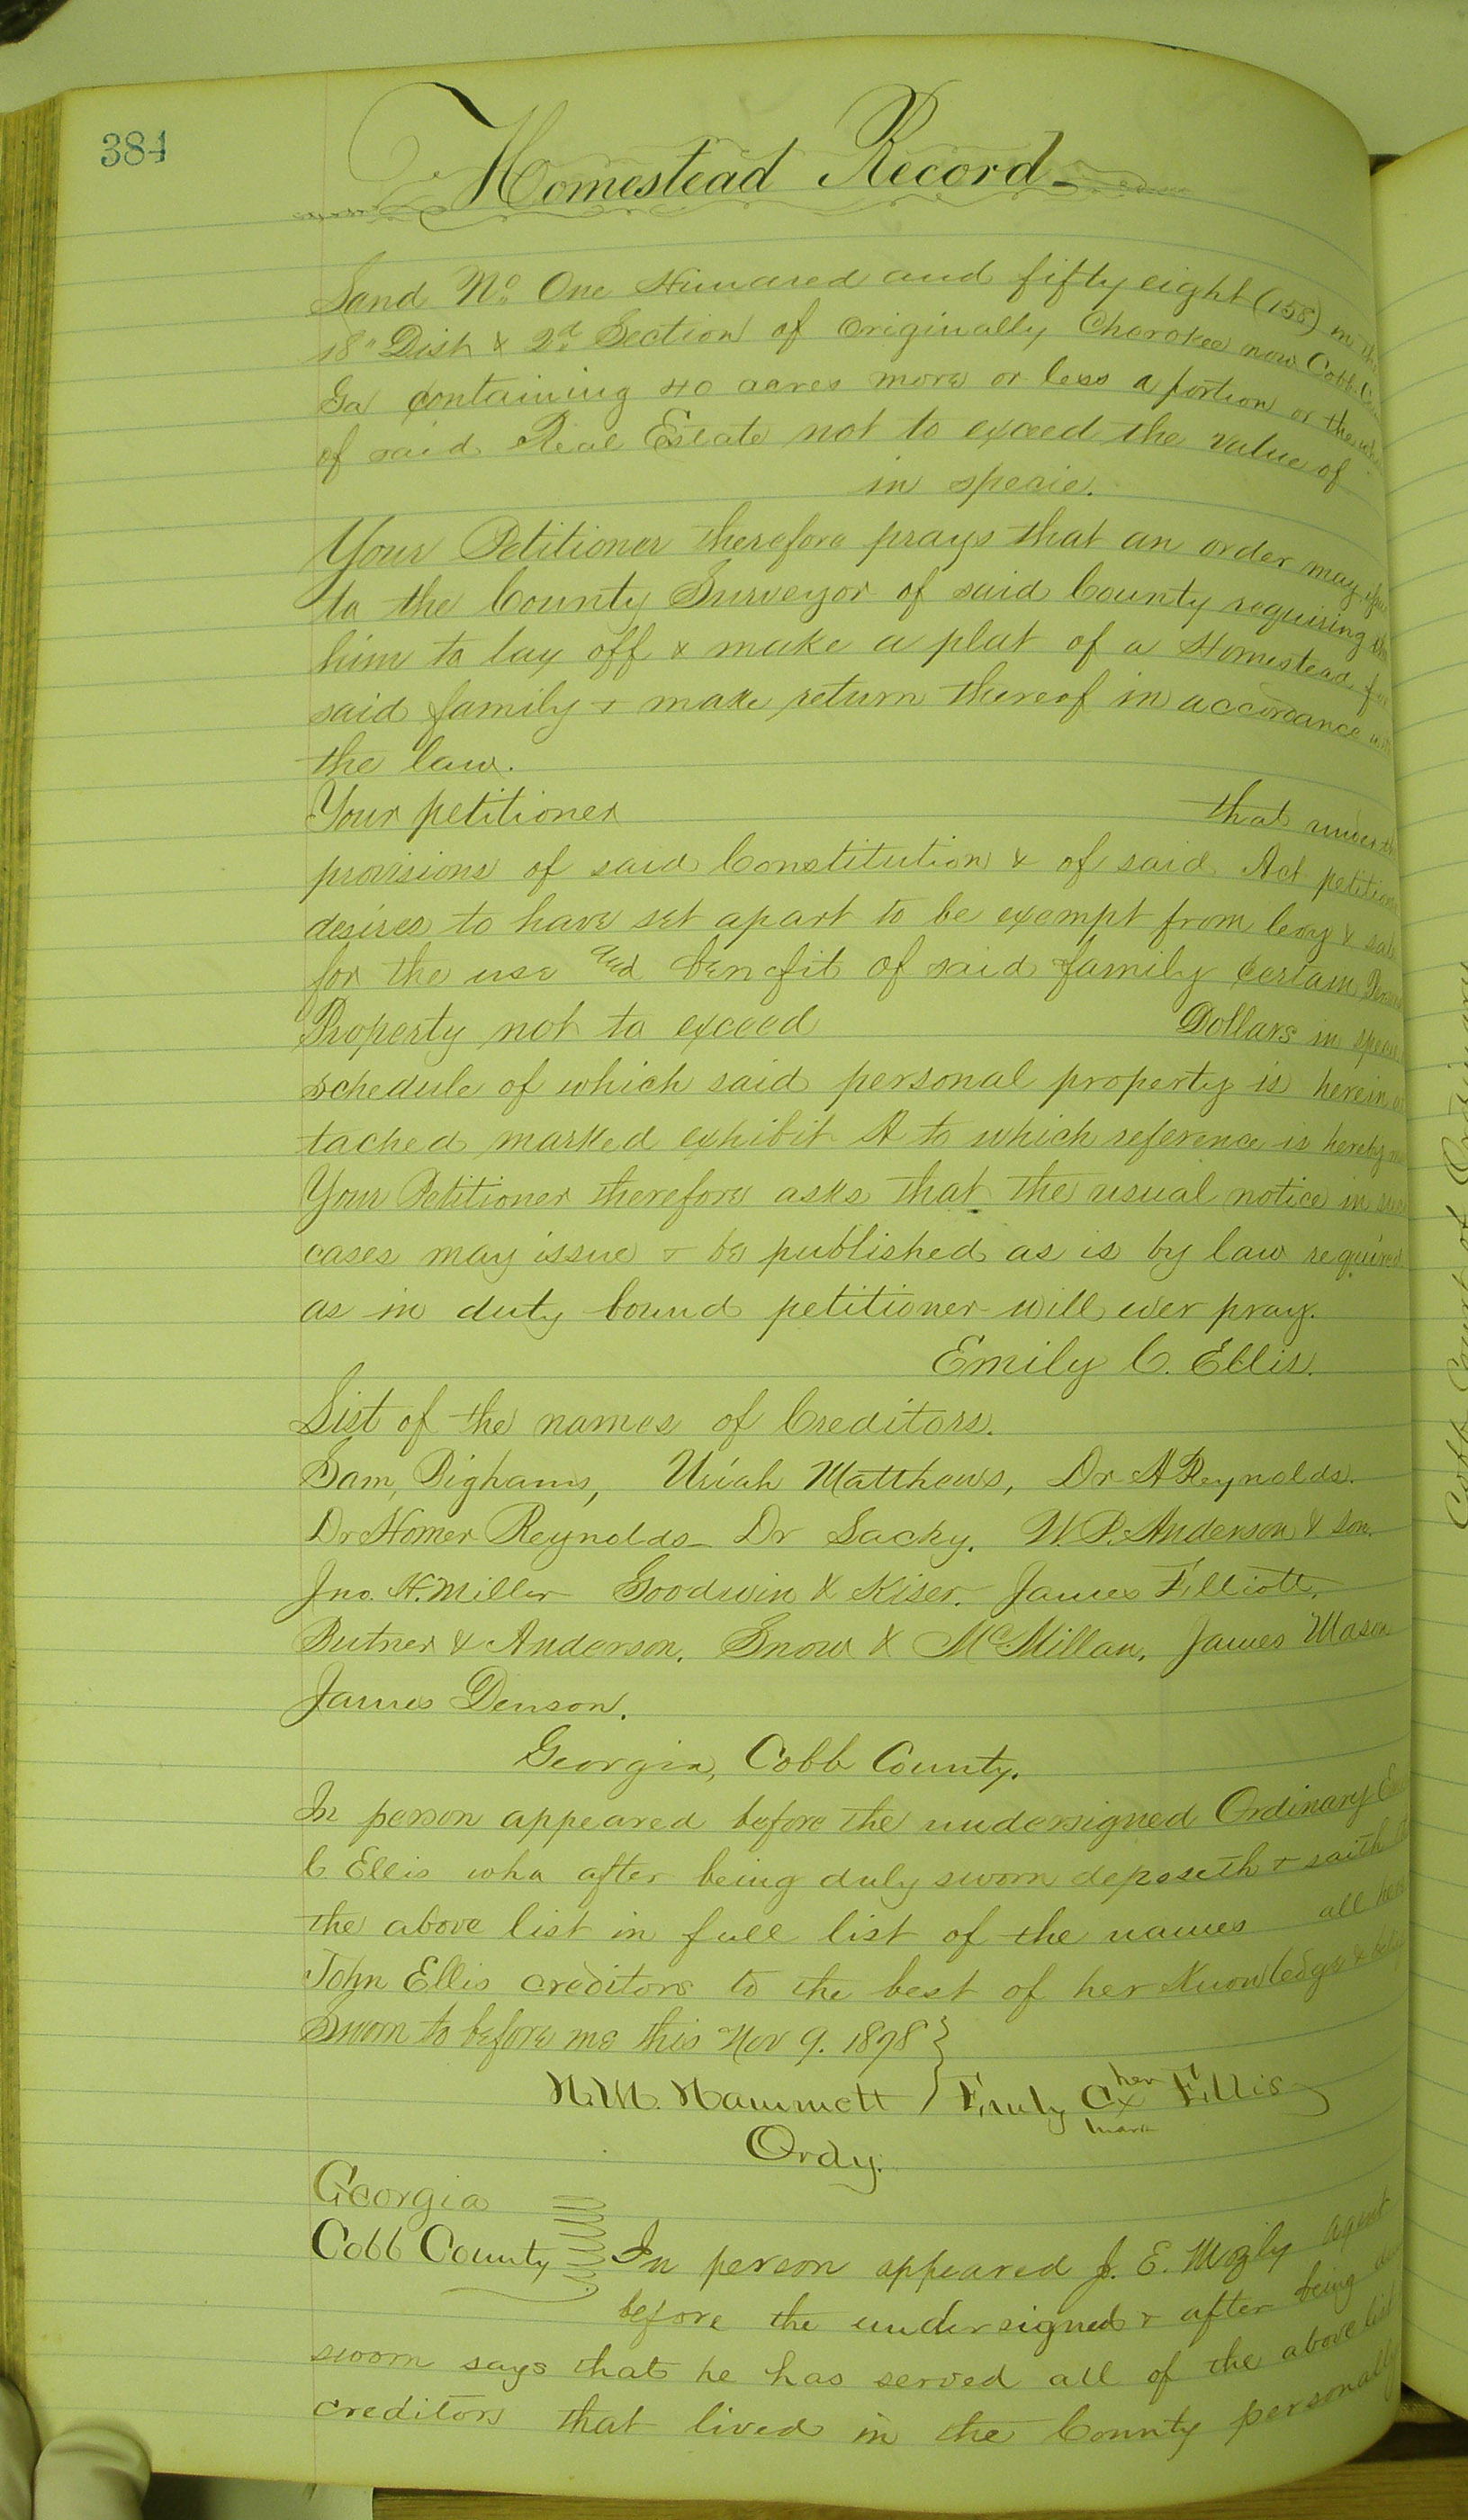 384
Homestead Record
Land No. One Hunared and fifty eight (158) in the
18" Dist & 2d. Section of originally Cherokee now Cobb Cou
Ga containing 40 acres more or less a portion or the who
of said Real Estate not to exceed the value of
in specie.
Your Petitioner therefore prays that an order may
to the County Surveyor of said County requiring
him to lay off & make a plat of a Homestead for
said family & make return thereof in accordance with
the law.
Your petitioner that under the
provisions of said Constitution & of said Act petition
desires to have set apart to be exempt from levy & sale
for the use and benefit of said family certain
Property not to exceed Dollars in specie
schedule of which said personal property is herein at
tached marked exhibit A to which reference is hereby
Your Petitioner therefore asks that the usual notice in such
cases may issue & be published as is by law required
as in duty bound petitioner will ever pray.
Emily C. Ellis.
List of the names of Creditors.
Sam, Bighams, Uriah Matthews, Dr A Reynolds.
Dr Homer Reynolds_ Dr Lacky. W. P. Anderson & son.
Jno. H. Miller Goodwin & Kiser. James Elliott,
Butner & Anderson. Snow & McMillan, James Mason
James Denson.
Georgia, Cobb County.
In person appeared before the undersigned Ordinary
C. Ellis who after being duly sworn deposeth & saith
the above list in full list of the names all
John Ellis creditors to the best of her Knowledge & belief
Sworn to before me this Nov 9. 1878 }
H. M. Hammett Emily C her x mark Ellis
Ordy.
Georgia
Cobb County In person appeared J. E. Mozly agent
before the undersigned & after being
sworn says that he has served all of the above list
creditors that lived in the County personally